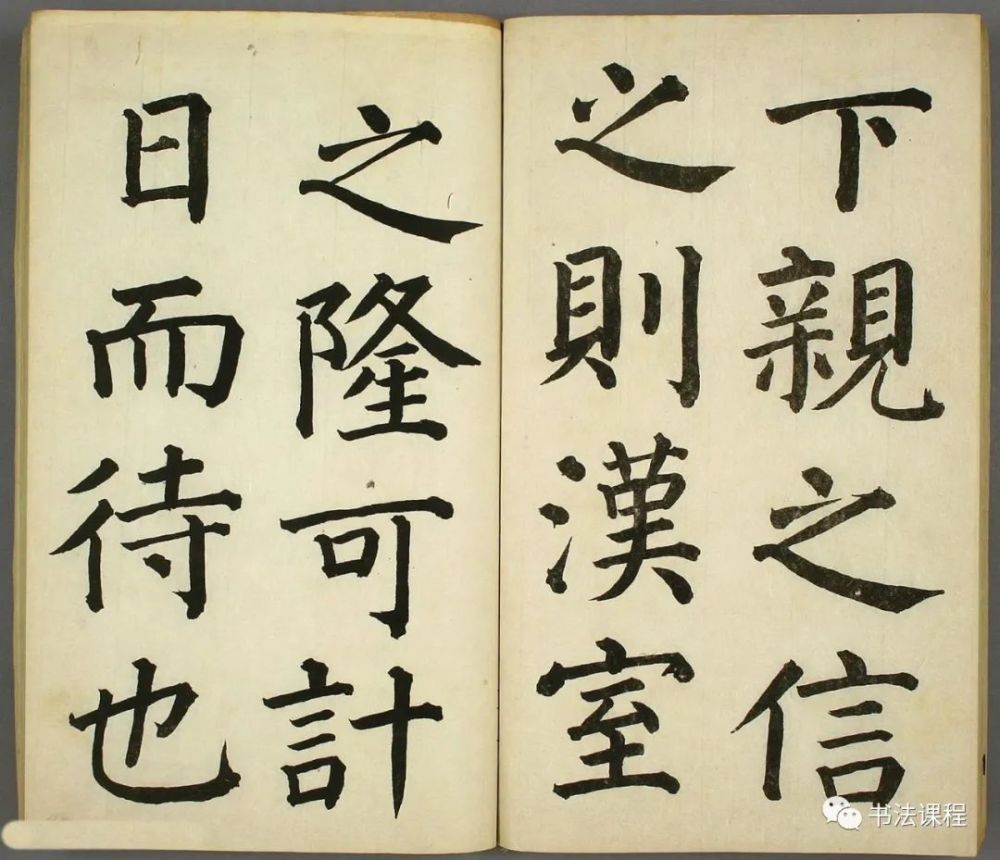 下親之信
之則漢室
之隆可計
日而待也
书法课程